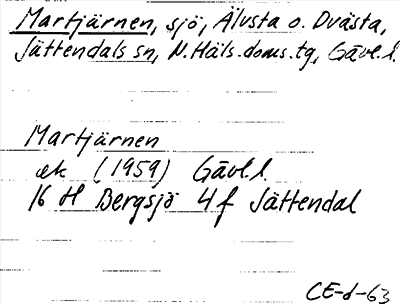 Martjärnen, sjö, Älvsta o. Dvästa,
Jättendals sn, N. Häls. doms. tg, Gävl. l.
Martjärnen
ek (1959) Gävl. l.
16 H Bergsjö 4 f Jättendal
CE-d-63